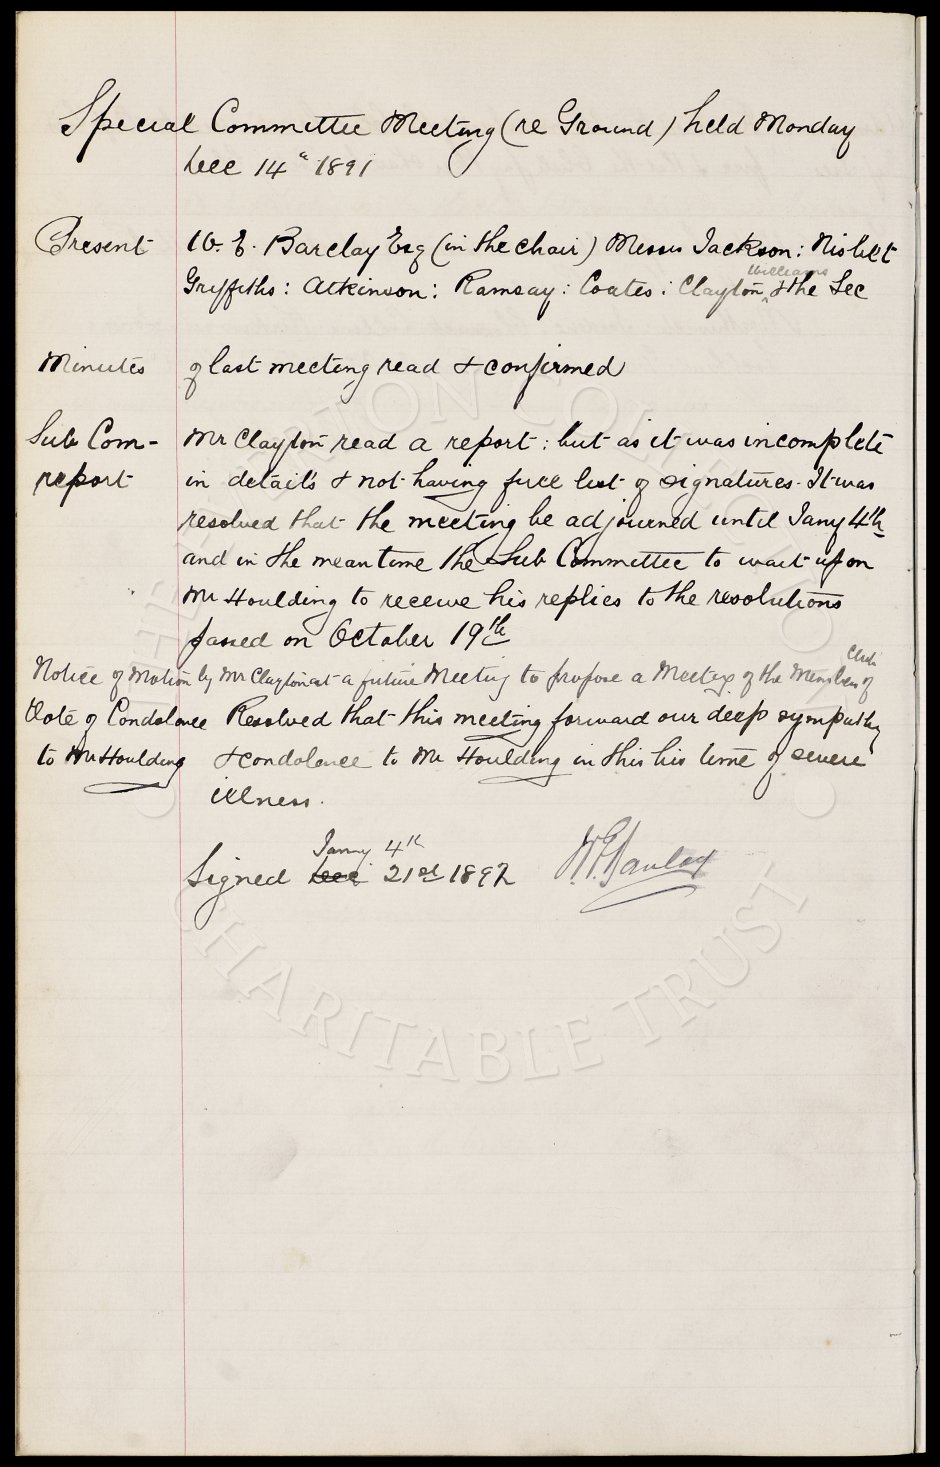 Special Committee Meeting (re Ground) held Monday
Dec 14th 1891
Present W. E. Barclay Esq (in the chair) Messrs Jackson: Nisbet
Williams
Griffiths: Atkinson: Ramsay: Coates: Clayton ^ & the Sec
Minutes of last meeting read & confirmed
Sub Com- Mr Clayton read a report: but as it was incomplete
report in details & not having full list of signatures. It was
resolved that the meeting be adjourned until Jany 4th
and in the meantime the Sub Committee to wait upon
Mr Houlding to receive his replies to the resolutions
passed on October 19th
Club
Notice of Motion by Mr Clayton at a future Meeting to propose a Meeting of the Members of
Vote of Condolence Resolved that this meeting forward our deep sympathy
to Mr Houlding & condolence to Mr Houlding in this his time of severe
illness.
Jany 4th
Signed Dec 21st 1892 W.E. Barclay
THE EVERTON COLLECTION
CHARITABLE TRUST